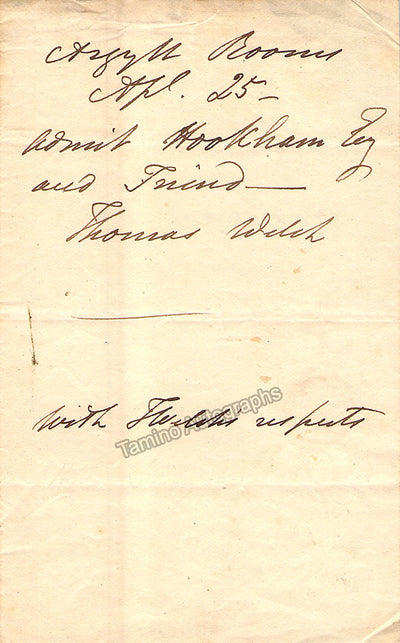 Argyll Rooms
Apl. 25 –
Admit Hookham Esq
and Friend —
Thomas Welsh
with TWelsh's respects
Tamino Autographs